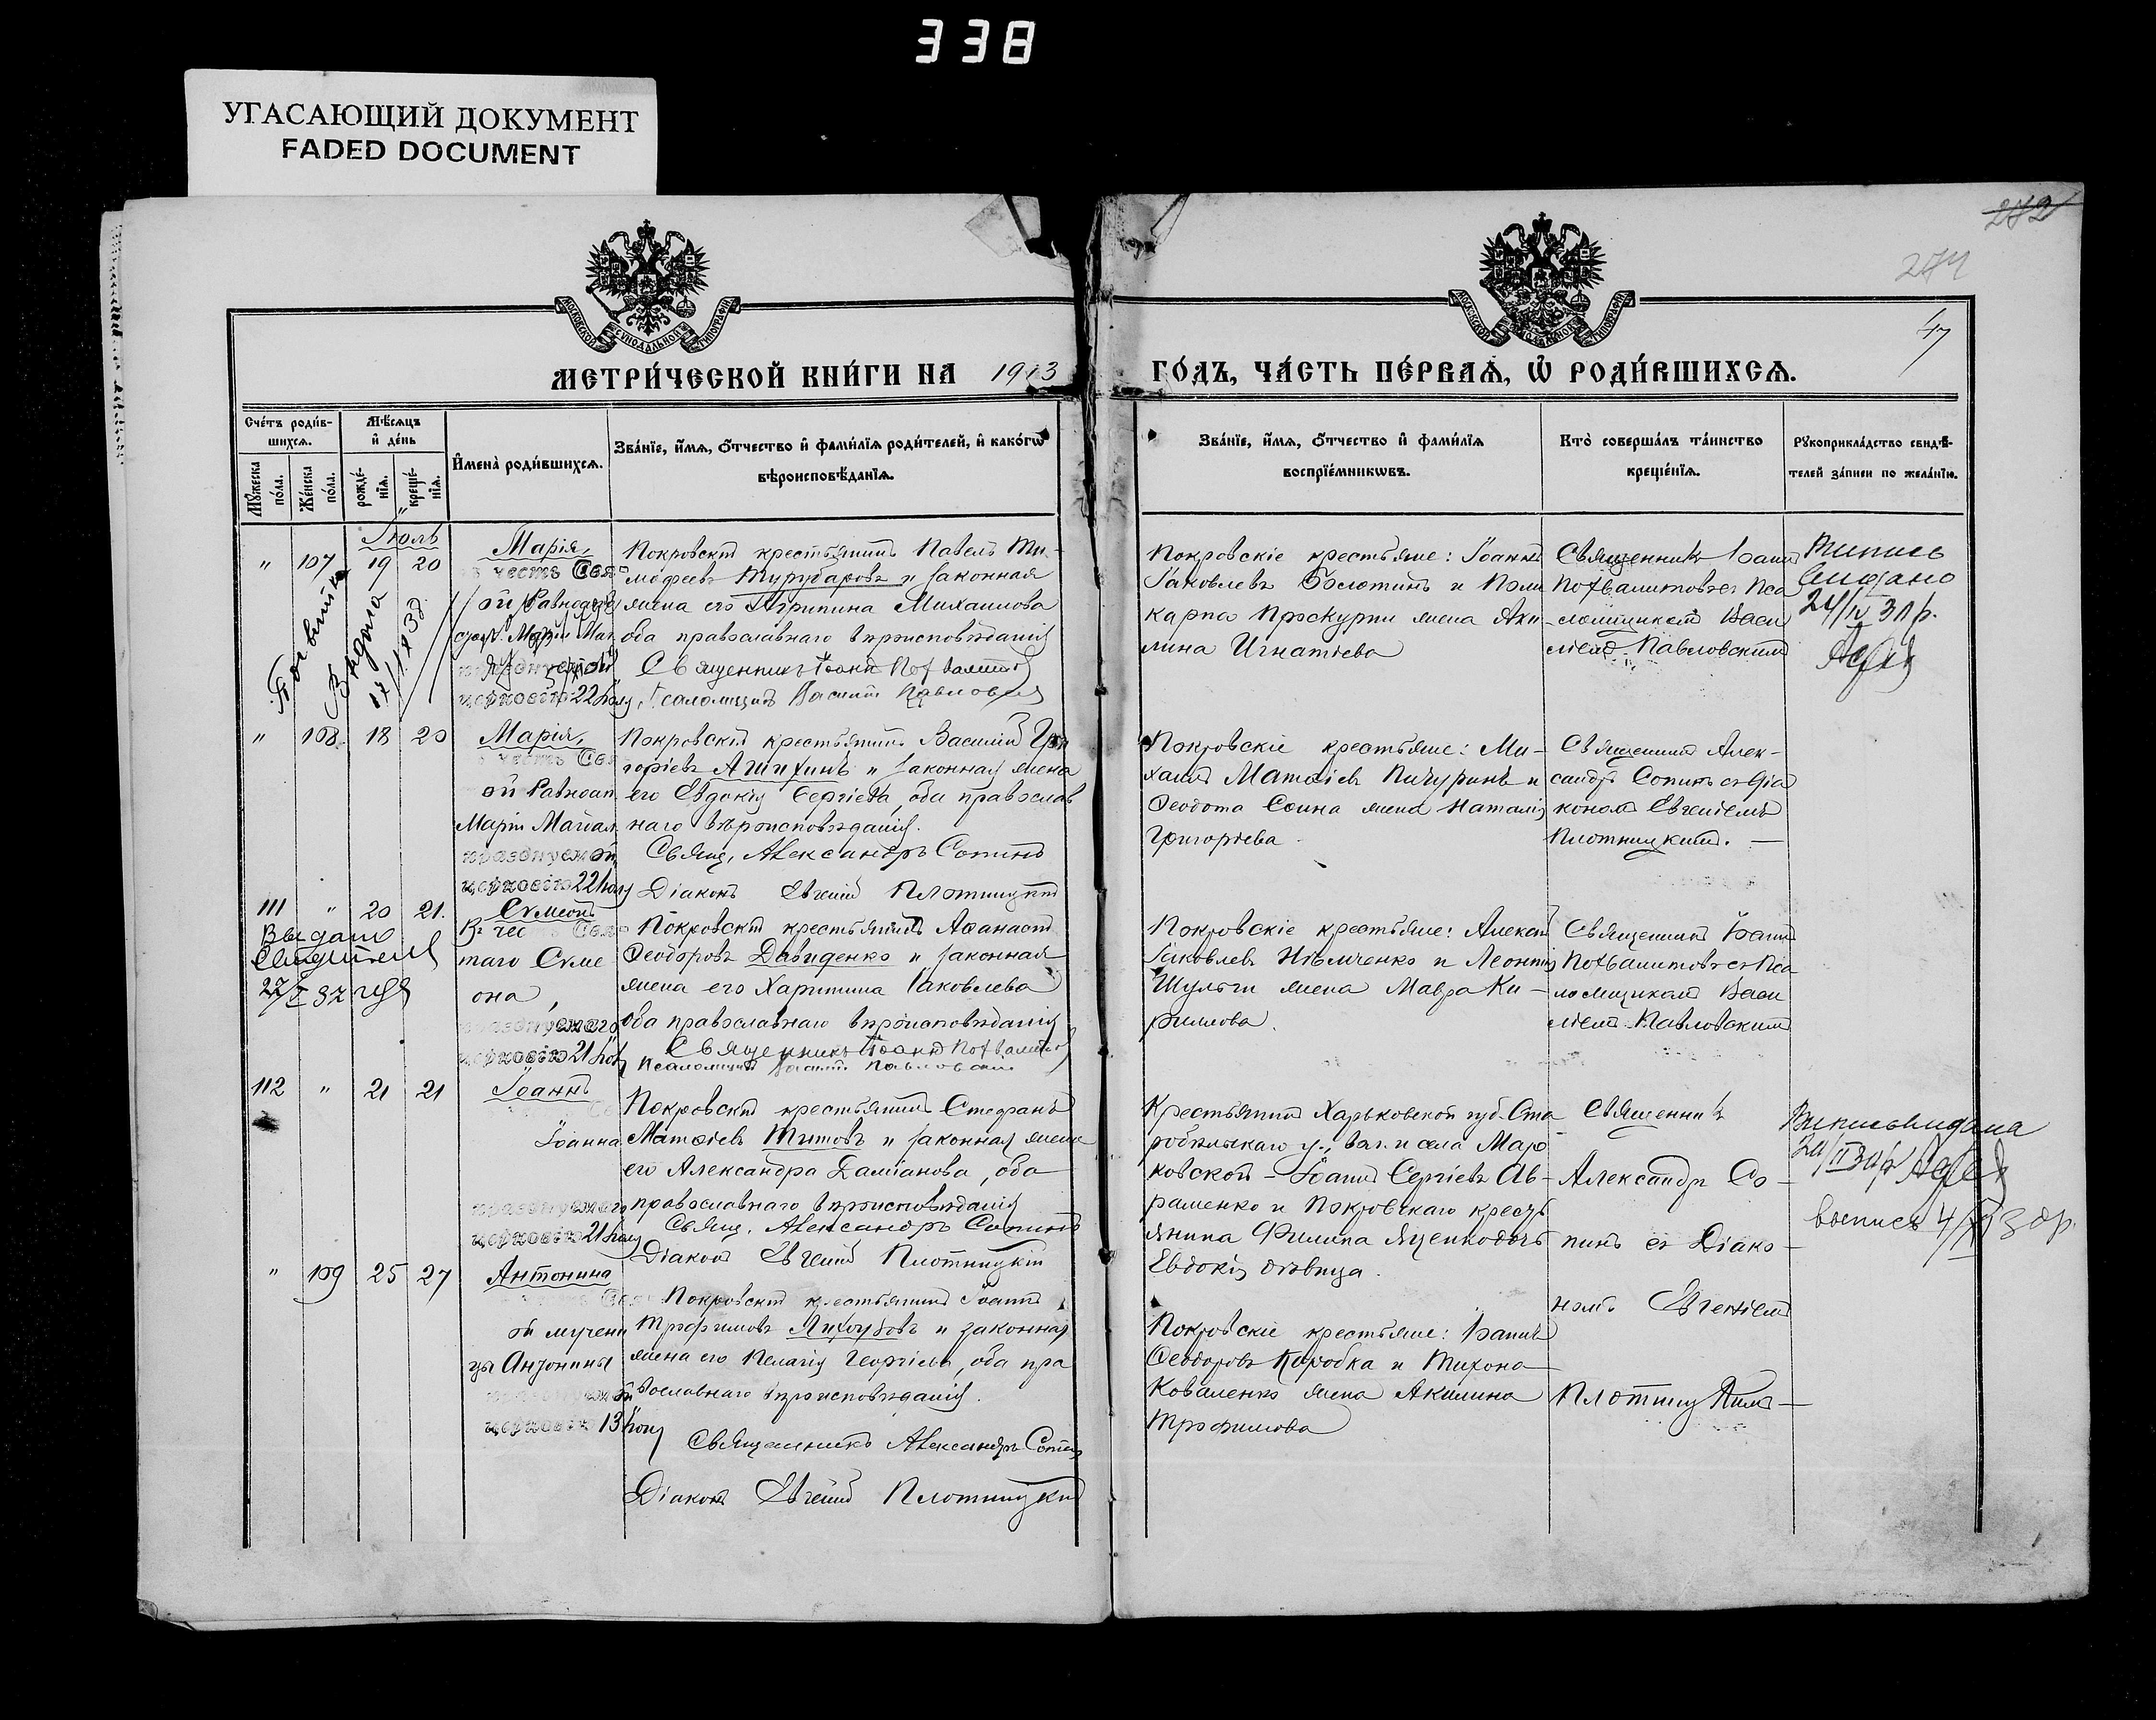 338
УГАСАЮЩИЙ ДОКУМЕНТ
FADED DOCUMENT
272
274
47
МОСКОВСКОЙ СѴНОДАЛЬНОЙ ТИПОГРАФІИ
МЕТРИ́ЧЕСКОЙ КНИ́ГИ НА 1913 ГО́ДЪ, ЧА́СТЬ ПЕ́РВАѦ, Ѿ РОДИ́ВШИХСѦ.
Сче́тъ роди́в-
шихсѧ.
Мꙋ́жеска по́ла.
Же́нска по́ла.
Мѣ́сѧцъ
и҆ де́нь
рожде́-
нїѧ.
креще́-
нїѧ.
И҆мена̀ роди́вшихсѧ.
Зва́нїе, и҆́мѧ, ѻ҆́тчество и҆ фами́лїѧ роди́телей, и҆ како́гѡ
вѣроисповѣ́данїѧ.
Зва́нїе, и҆́мѧ, ѻ҆́тчество и҆ фами́лїѧ
воспрїе́мникѡвъ.
Кто̀ соверша́лъ та́инство
креще́нїѧ.
Рꙋкоприкла́дство свидѣ́-
телей за́писи по жела́нїю.
Іюль
" 107 19 20
Марія,
въ честь Свят
ой Равноап
Маріи Маг
празднуемой
церковію 22 Іюля
Покровскій крестьянинъ Павелъ Ти-
мофеевъ Турубаровъ и законная
жена его Агрипина Михаилова
оба православнаго вѣроисповѣданія
Священникъ Іоаннъ Похвалитовъ
Псаломщикъ Василій Павловскій
Покровскіе крестьяне: Іоаннъ
Іаковлевъ Болотинъ и Поли
карпа Проскурни жена Аки-
лина Игнатіева
Священникъ Іоаннъ
Похвалитовъ съ Пса
ломщикомъ Васи
ліемъ Павловскимъ
Выдано
24/IV 31 р.
Выдана
17/I 38
" 108 18 20
Марія,
въ честь Свят
ой Равноап.
Маріи Магдал.
празднуемой
церковію 22 Іюля
Покровскій крестьянинъ Василій Гри
горіевъ Ашихинъ и законная жена
его Евдокія Сергіева, оба православ
наго вѣроисповѣданія.
Свящ. Александръ Сопинъ
Діаконъ Евгеній Плотницкій
Покровскіе крестьяне: Ми-
хаилъ Матѳіевъ Пичуринъ и
Ѳеодота Соина жена Наталія
Григоріева.
Священникъ Алек-
сандръ Сопинъ съ Діа
кономъ Евгеніемъ
Плотницкимъ.
111 " 20 21.
Выдано
27/I 32 года
Сѵмеонъ
Въ честь Свя-
таго Сѵме
она,
празднуемаго
церковію 21 Іюля
Покровскій крестьянинъ Аѳанасій
Ѳеодоровъ Давиденко и законная
жена его Харитина Іаковлева
оба православнаго вѣроисповѣданія
Священникъ Іоаннъ Похвалитовъ
Псаломщикъ Василій Павловскій
Покровскіе крестьяне: Алексій
Іаковлевъ Нѣмченко и Леонтія
Шульги жена Мавра Ки-
риллова.
Священникъ Іоаннъ
Похвалитовъ съ Пса
ломщикомъ Васи
ліемъ Павловскимъ
112 " 21 21
Іоаннъ
Іоанна
празднуемаго
церковію 21 Іюля
Покровскій крестьянинъ Стефанъ
Матѳіевъ Титовъ и законная жена
его Александра Даміанова, оба
православнаго вѣроисповѣданія
Свящ. Александръ Сопинъ
Діаконъ Евгеній Плотницкій
Крестьянинъ Харьковской губ. Ста
робѣльскаго у., вол. и села Мар
ковской - Іоаннъ Сергіевъ Ав-
раменко и Покровскаго кресть
янина Филиппа Яценко дочь
Евдокія дѣвица.
Священникъ
Александръ Со-
пинъ съ Діако-
номъ Евгеніемъ
Плотницкимъ
Выпись выдана
24/II 31 р.
выпись
" 109 25 27
Антонина
ой мучени
цы Антонины
празднуемой
церковію 13 Іюня
Покровскій крестьянинъ Іоаннъ
Трофимовъ Лихоузовъ и законная
жена его Пелагія Георгіева, оба пра
вославнаго вѣроисповѣданія.
Священникъ Александръ Сопинъ
Діаконъ Евгеній Плотницкій
Покровскіе крестьяне: Іоаннъ
Ѳеодоровъ Коробка и Тихона
Коваленко жена Акилина
Трофимова